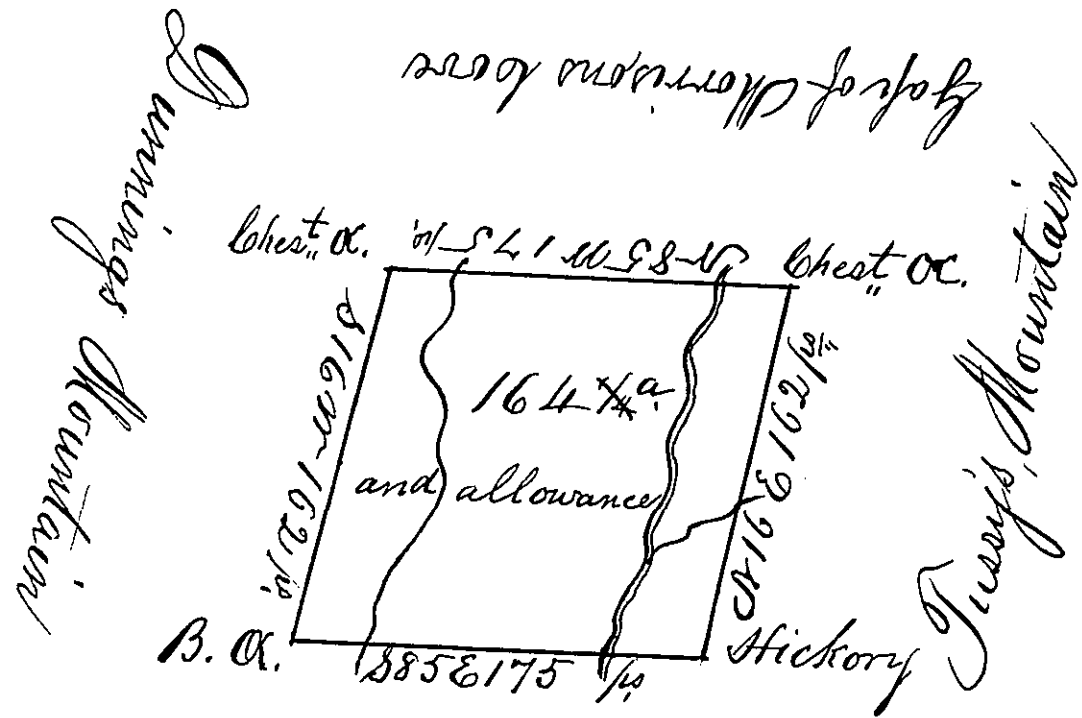 Gap of Morrisons Cove
Dunnings Mountain
Tussys Mountain
Chest. O.
N 85 W 175 ps
Chest. O.
S 16 W 162 ps
164 ¼ a.
and allowance
N 16 E 162 ps
B. O.
S 85 E 175 ps
Hickory